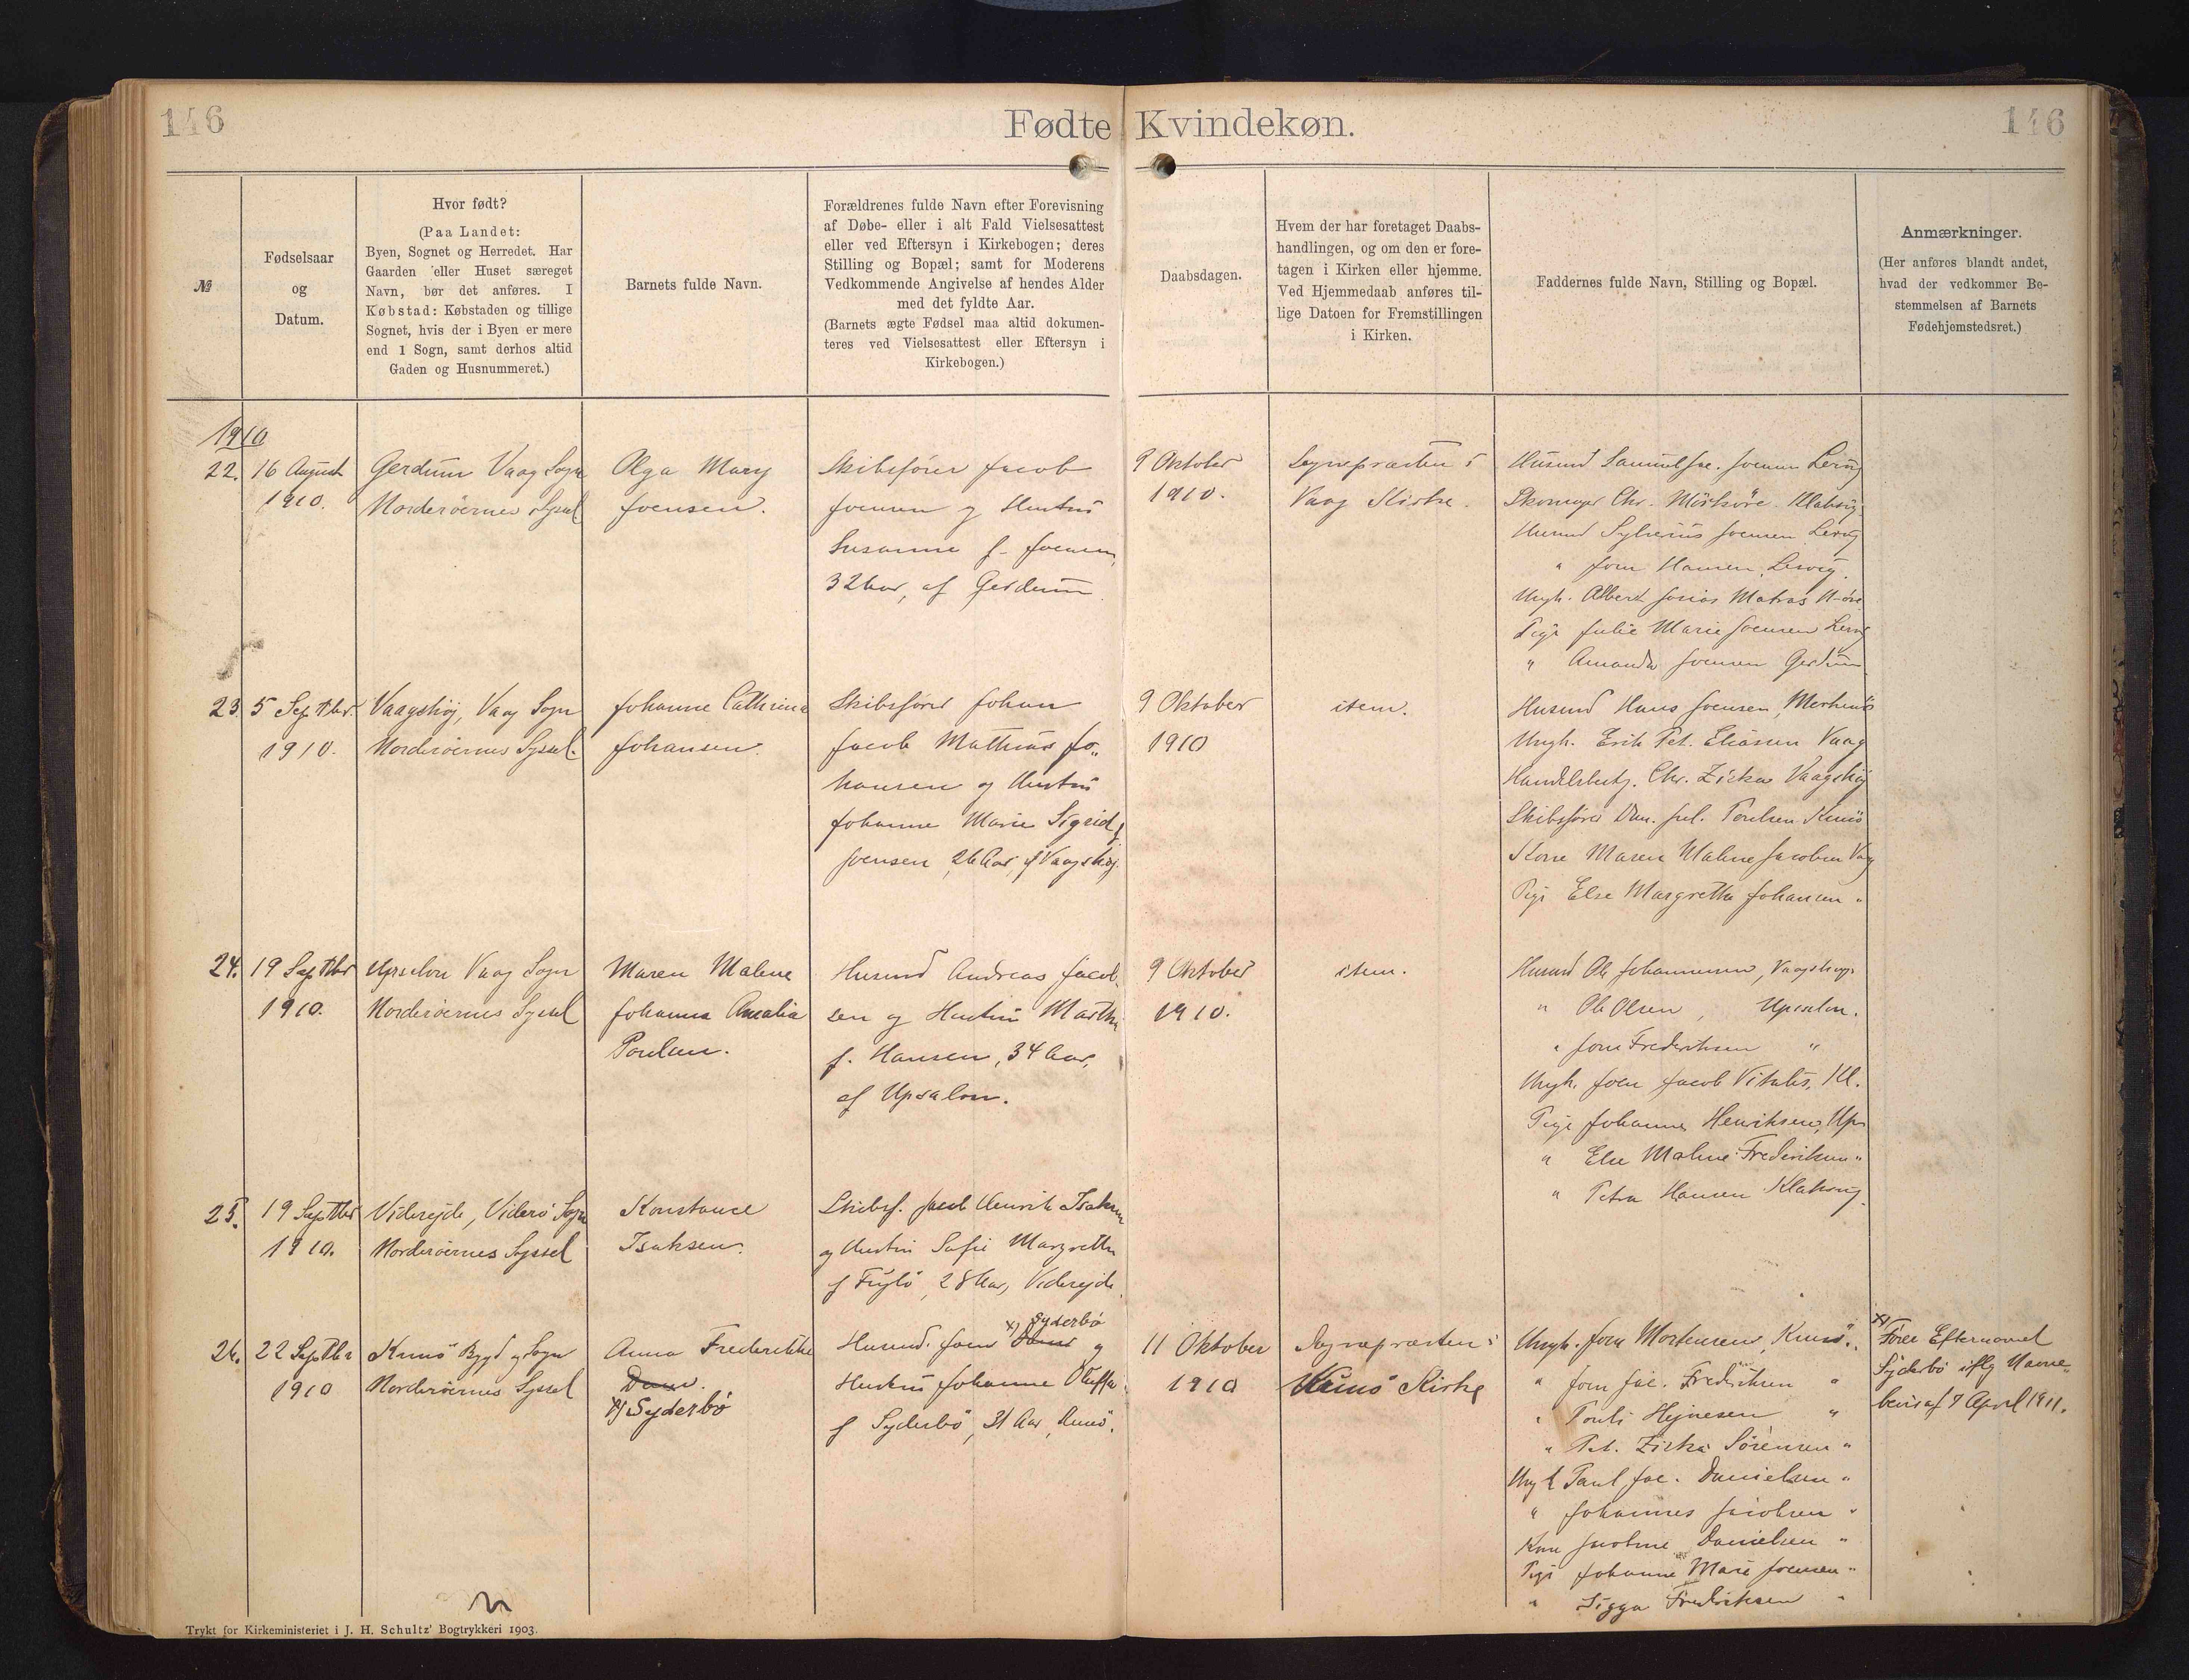 146
Fødte Kvindekøn.
146
№
Fødselsaar
og
Datum.
Hvor født?
(Paa Landet:
Byen, Sognet og Herredet. Har
Gaarden eller Huset særeget
Navn, bør det anføres. I
Købstad: Købstaden og tillige
Sognet, hvis der i Byen er mere
end 1 Sogn, samt derhos altid
Gaden og Husnummeret.)
Barnets fulde Navn.
Forældrenes fulde Navn efter Forevisning
af Døbe- eller i alt Fald Vielsesattest
eller ved Eftersyn i Kirkebogen; deres
Stilling og Bopæl; samt for Moderens
Vedkommende Angivelse af hendes Alder
med det fyldte Aar.
(Barnets ægte Fødsel maa altid dokumen-
teres ved Vielsesattest eller Eftersyn i
Kirkebogen.)
Daabsdagen.
Hvem der har foretaget Daabs-
handlingen, og om den er fore-
tagen i Kirken eller hjemme.
Ved Hjemmedaab anføres til-
lige Datoen for Fremstillingen
i Kirken.
Faddernes fulde Navn, Stilling og Bopæl.
Anmærkninger.
(Her anføres blandt andet,
hvad der vedkommer Be-
stemmelsen af Barnets
Fødehjemstedsret.)
1910
22.
16 August
1910.
Gerdum Vaag Sogn
Norderöernes Syssel
Olga Mary
Joensen.
Skibsfører Jacob
Joensen og Hustru
Susanne f. Joensen,
32 Aar, af Gerdum
9 Oktober
1910.
Sognepræsten i
Vaag Kirke.
Husmd Samuel Jac. Joensen Lervig
Skomager Chr. Mörköre Klaksvig
Husmd Sylverius Joensen Lervig
" Joen Hansen, Lervig.
Ungk. Albert Josias Matras
Pige Julie Marie Joensen Lervig
" Amanda Joensen Gerdum
23.
5 Septbr.
1910.
Vaagshöj, Vaag Sogn
Norderöernes Syssel.
Johanne Cathrina
Johansen.
Skibsfører Johan
Jacob Mathias Jo-
hansen og Hustru
Johanne Marie Sigrid f.
Joensen, 26 Aar, af Vaagshöj.
9 Oktober
1910
item.
Husmd Hans Joensen,
Ungk. Erik Pet. Eliasen Vaag
Handelsbest. Chr. Ziska Vaagshöj
Skibsfører Dan. Poulsen Kunö
Kone Maren Malene Jacobsen Vaag
Pige Else Margretha Johansen "
24.
19 Septbr
1910.
Upsalon Vaag Sogn
Norderöernes Syssel
Maren Malene
Johanna Amalia
Poulsen.
Husmd Andreas Jacob-
sen og Hustru Martha
f. Hansen, 34 Aar,
af Upsalon.
9 Oktober
1910.
item.
Husmd Ole Johannesen, Vaagshöj.
" Ole Olsen, Upsalon.
" Joen Frederiksen "
Ungk. Joen Jacob Vitalis, Kl.
Pige Johanne Henriksen, Ups
" Else Malene Frederiksen "
" Petra Hansen Klaksvig.
25.
19 Septbr
1910.
Viderejde, Viderö Sogn
Norderöernes Syssel
Konstance
Isaksen.
Skibsf. Jacob Henrik Isaksen
og Hustru Sofie Margretha
f Fuglö, 28 Aar, Viderejde.
26.
22 Septbr
1910
Kunö Bygd og Sogn
Norderöernes Syssel
Anna Frederikke
x) Syderbö
x) Syderbö
Husmd. Joen og
Hustru Johanne Oluffa
f Syderbö, 31 Aar, Kunö.
11 Oktober
1910
Sognepræsten i
Kunö Kirke
Ungk. Joen Mortensen, Kunö.
" Joen Jac. Frederiksen "
" Pouli Hejnesen "
" Pet. Ziska Sörensen "
Ungk Paul Jac. Danielsen "
" Johannes Jacobsen "
Kone Jacobine Danielsen "
Pige Johanne Marie Joensen "
" Sigga Frederiksen "
x) Fører Efternavnet
Syderbö iflg Navne-
bevis af 7 April 1911.
Trykt for Kirkeministeriet i J. H. Schultz' Bogtrykkeri 1903.